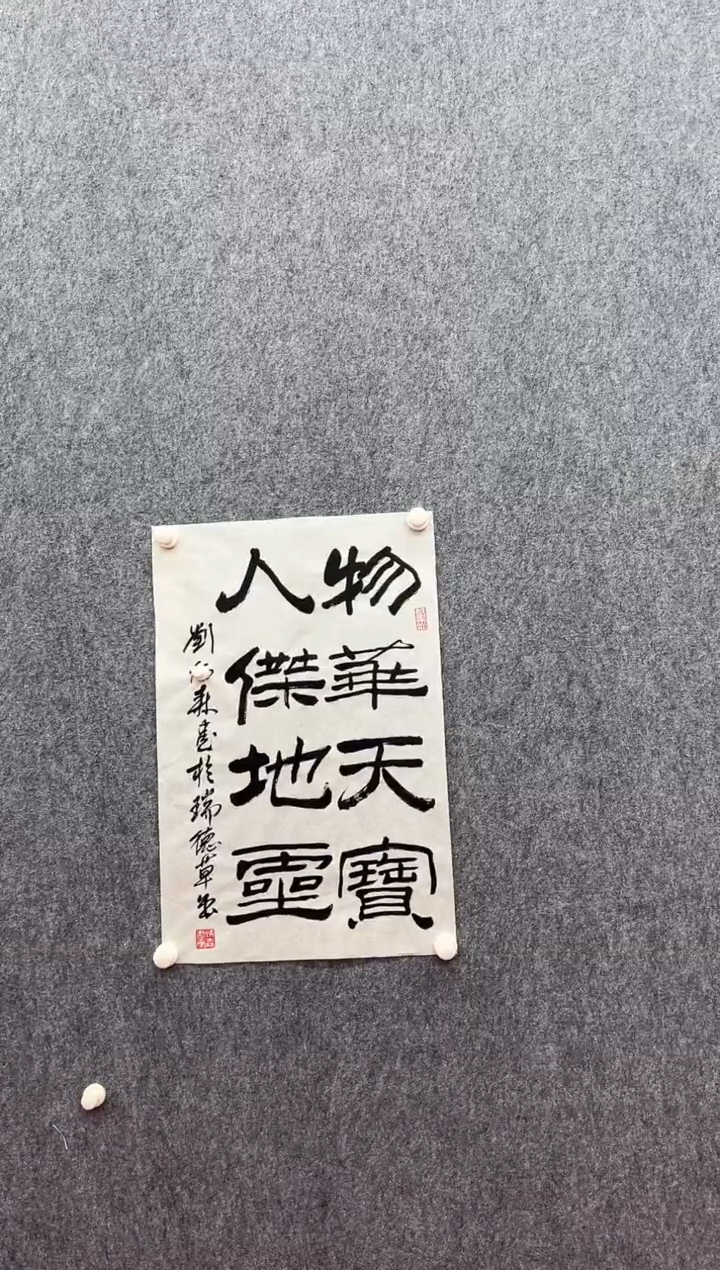 物華天寶
人傑地靈
劉 森書於瑞德草堂